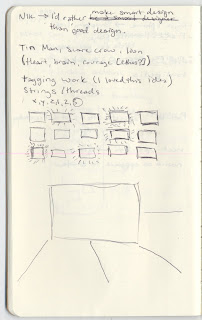 Nik → I'd rather make smart design
than "good" design.
Tin Man, Scare crow, Lion
(Heart, brain, courage [ethics?])
tagging work (I loved this idea)
Strings / threads